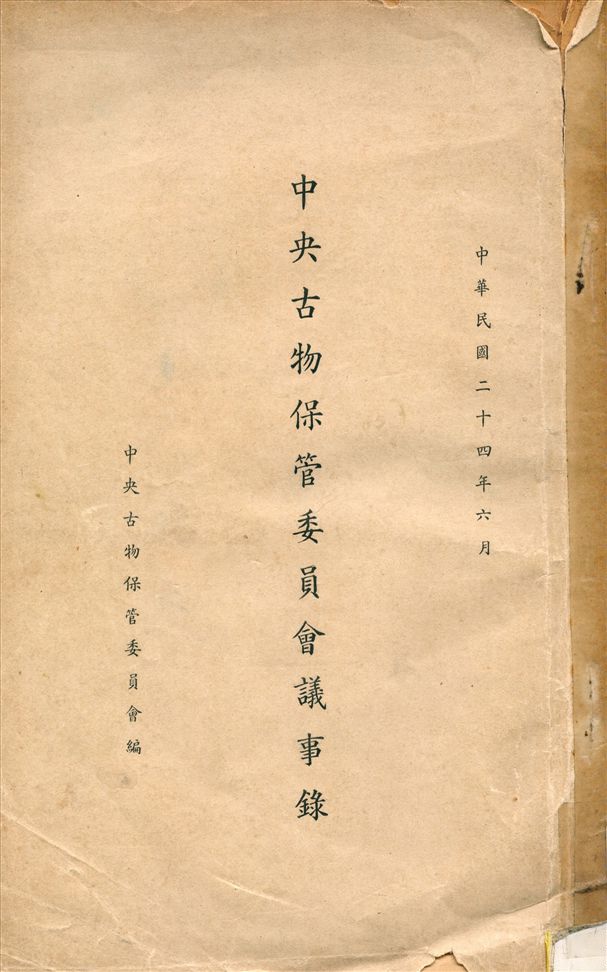 中華民國二十四年六月
中央古物保管委員會議事錄
中央古物保管委員會編